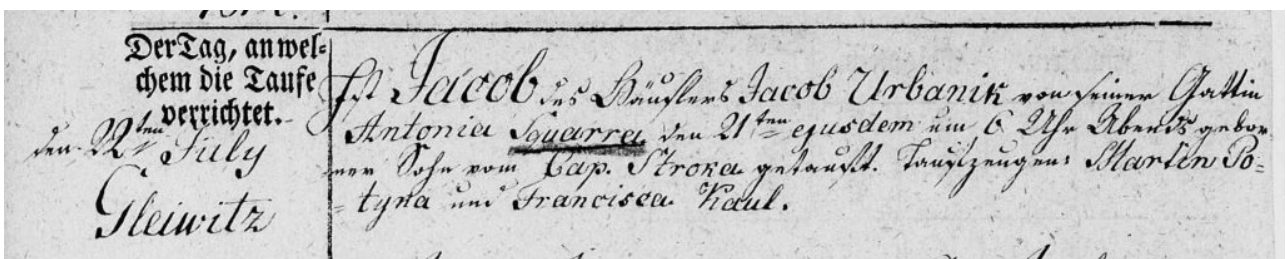 Der Tag, an wel=
chem die Taufe
verrichtet.
den 22ten July
Gleiwitz
Ist Jacob des Häuslers Jacob Urbanik von seiner Gattin
Antonia Squarra den 21ten ejusdem um 6 Uhr Abends gebor
ner Sohn vom Cap. Stroka getauft. Taufzeugen: Martin Po=
=tyka und Francisca Kaul.